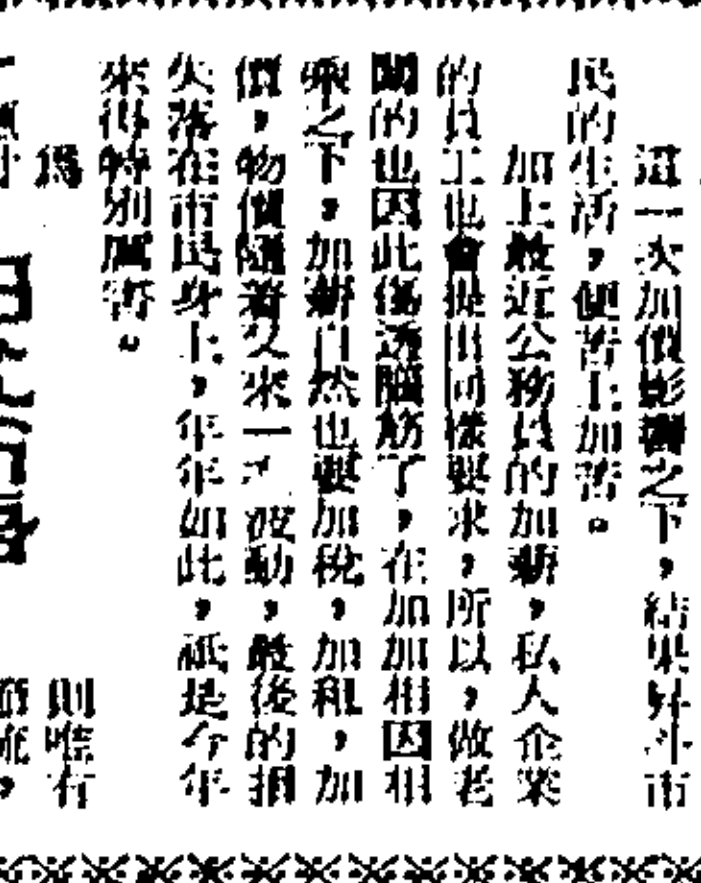 這一次加價影響之下，結果升斗市
民的生活，便苦上加苦。
加上最近公務員的加薪，私人企業
的員工也會提出同樣要求，所以，做老
闆的也因此傷透腦筋了，在加加相因相
乘之下，加薪自然也要加稅，加租，加
價，物價隨着又來一次波動，最後的損
失落在市民身上，年年如此，祇是今年
來得特別厲害。
爲
則唯有